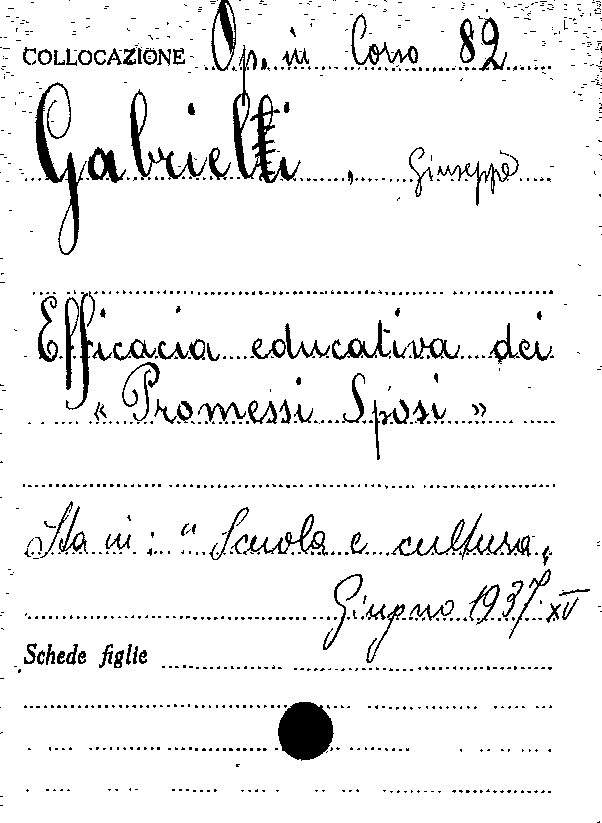 COLLOCAZIONE Op. in Corso 82
Gabrielli, Giuseppe
Efficacia educativa dei
« Promessi Sposi »
Sta in: “ Scuola e cultura„
Giugno 1937. XV
Schede figlie